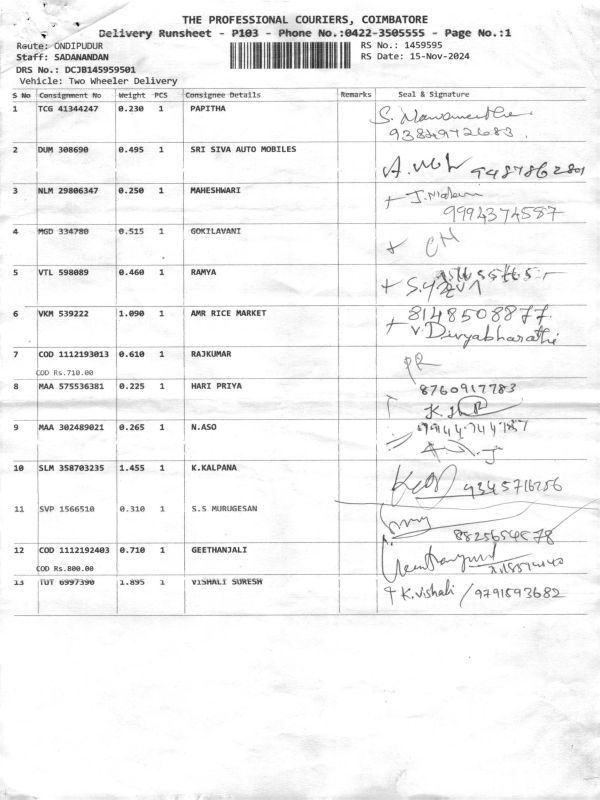 THE PROFESSIONAL COURIERS, COIMBATORE
Delivery Runsheet - P103 - Phone No.:0422-3505555 - Page No.:1
Route: ONDIPUDUR RS No.: 1459595
Staff: SADANANDAN RS Date: 15-Nov-2024
DRS No.: DCJB145959501
Vehicle: Two Wheeler Delivery
S No Consignment No Weight PCS Consignee Details Remarks Seal & Signature
1 TCG 41344247 0.230 1 PAPITHA
2 DUM 308690 0.495 1 SRI SIVA AUTO MOBILES
9487862801
3 NLM 29806347 0.250 1 MAHESHWARI
9994374587
4 MGD 334780 0.515 1 GOKILAVANI
5 VTL 598089 0.460 1 RAMYA
6 VKM 539222 1.090 1 AMR RICE MARKET 8148508877
V. Divyabharathi
7 COD 1112193013 0.610 1 RAJKUMAR
COD Rs.710.00 PR
8 MAA 575536381 0.225 1 HARI PRIYA 8760917783
9 MAA 302489021 0.265 1 N.ASO
10 SLM 358703235 1.455 1 K.KALPANA
9345716256
11 SVP 1566510 0.310 1 S.S MURUGESAN
12 COD 1112192403 0.710 1 GEETHANJALI
COD Rs.800.00
13 TUT 6997390 1.895 1 VISHALI SURESH K. Vishali / 9791593682